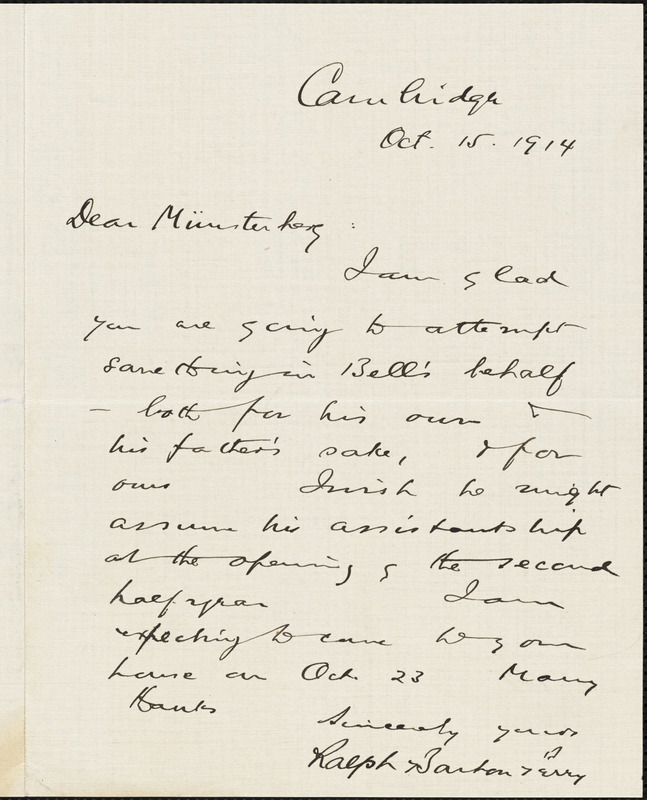 Cambridge
Oct. 15. 1914
Dear Münsterberg:
I am glad
you are going to attempt
something in Bell's behalf
– both for his own &
his father's sake, & for
ours I wish he might
assume his assistantship
at the opening of the second
half year I am
expecting to come to your
house on Oct. 23 Many
thanks
Sincerely yours
Ralph Barton Perry